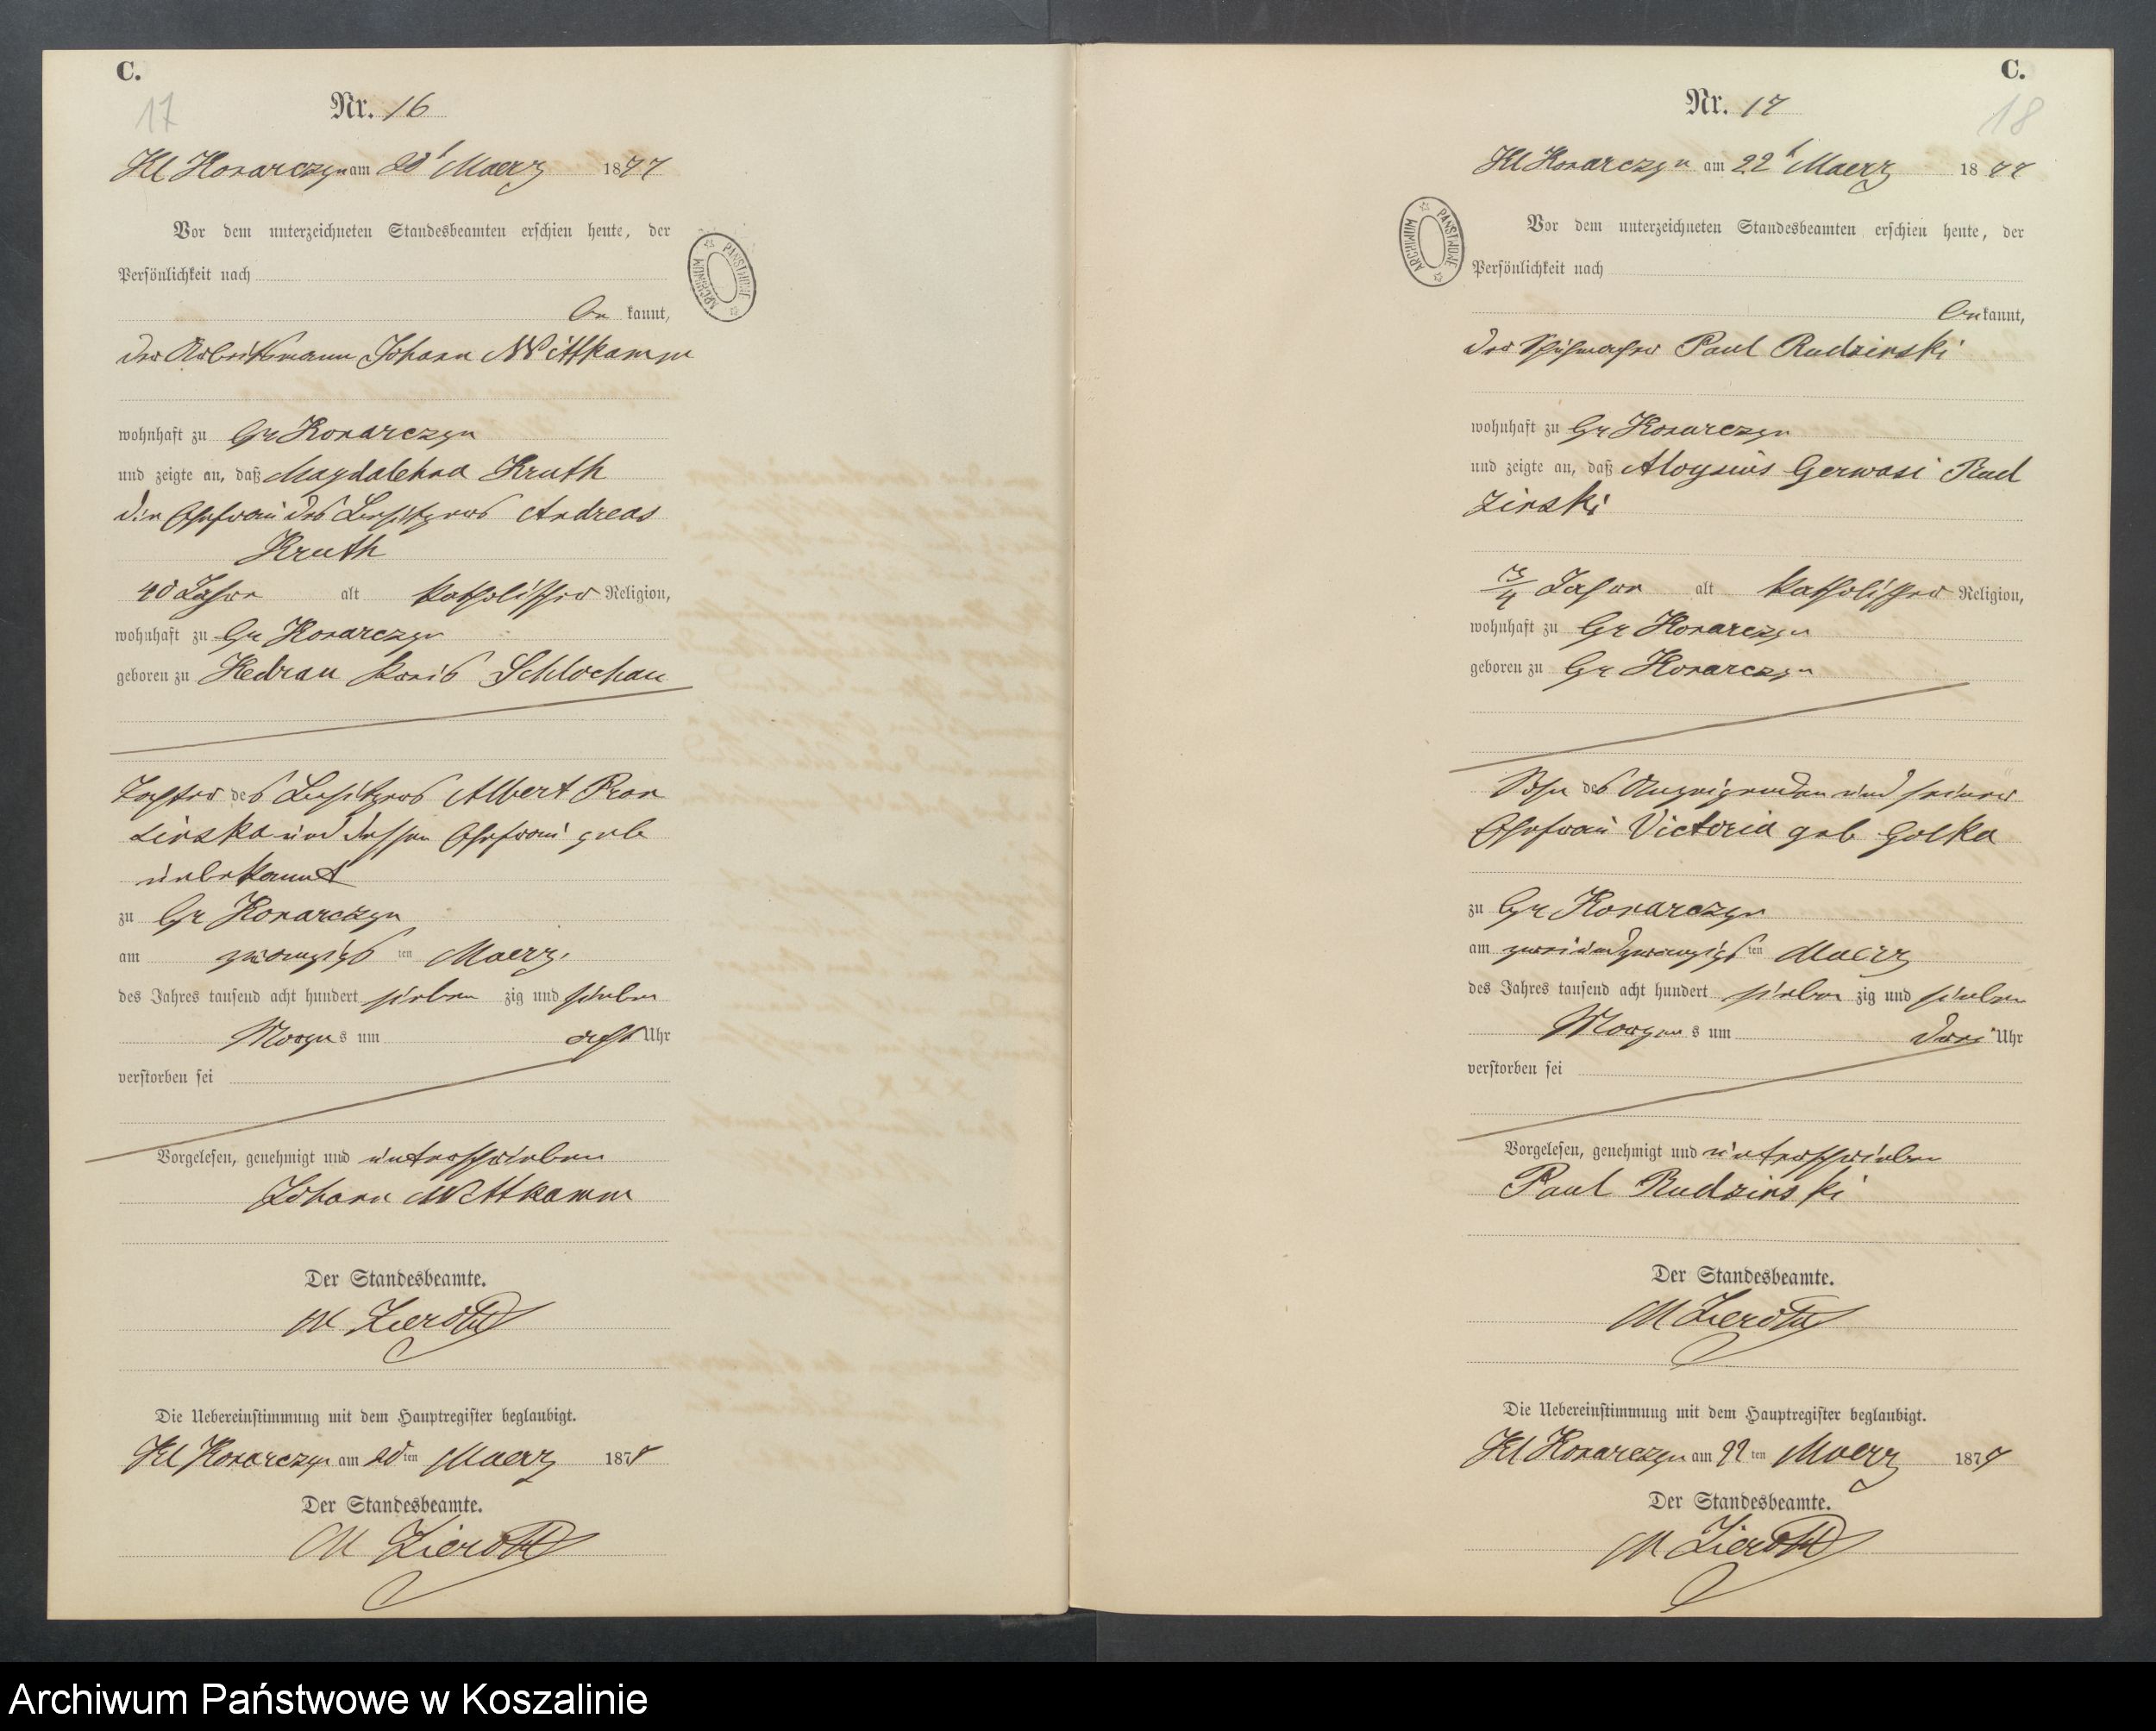 C.
17
Nr. 16
Kl Konarczyn am 20t Maerz 1877
Vor dem unterzeichneten Standesbeamten erschien heute, der
Persönlichkeit nach
be kannt,
der Arbeitsmann Johann Wittkamm
wohnhaft zu Gr Konarczyn
und zeigte an, daß Magdalehna Kruth
die Ehefrau des Besitzers Andreas
Kruth
40 Jahre alt katholischer Religion,
wohnhaft zu Gr Konarczyn
geboren zu Kedrau Kreis Schlochau
Tochter des Besitzers Albert Pron
zinska und dessen Ehefrau geb
unbekannt
zu Gr Konarczyn
am zwanzigsten Maerz
des Jahres tausend acht hundert sieben zig und sieben
Morgens um acht Uhr
verstorben sei
Vorgelesen, genehmigt und unterschrieben
Johann Wittkamm
Der Standesbeamte.
M
Die Uebereinstimmung mit dem Hauptregister beglaubigt.
Kl Konarczyn am 20ten Maerz 1877
Der Standesbeamte.
M
PANSTWOWE ARCHIWUM
C.
18
Nr. 17
Kl Konarczyn am 22t Maerz 1877
Vor dem unterzeichneten Standesbeamten erschien heute, der
Persönlichkeit nach
be kannt,
der Schuhmacher Paul Rudzinski
wohnhaft zu Gr Konarczyn
und zeigte an, daß Aloysius Gerwasi Rud
zinski
3/4 Jahre alt katholischer Religion,
wohnhaft zu Gr Konarczyn
geboren zu Gr Konarczyn
Sohn des Anzeigenden und seiner
Ehefrau Victoria geb Golka
zu Gr Konarczyn
am zweiundzwanzigsten Maerz
des Jahres tausend acht hundert sieben zig und sieben
Morgens um drei Uhr
verstorben sei
Vorgelesen, genehmigt und unterschrieben
Paul Rudzinski
Der Standesbeamte.
M
Die Uebereinstimmung mit dem Hauptregister beglaubigt.
Kl Konarczyn am 22ten Maerz 1877
Der Standesbeamte.
M
PANSTWOWE ARCHIWUM
Archiwum Państwowe w Koszalinie